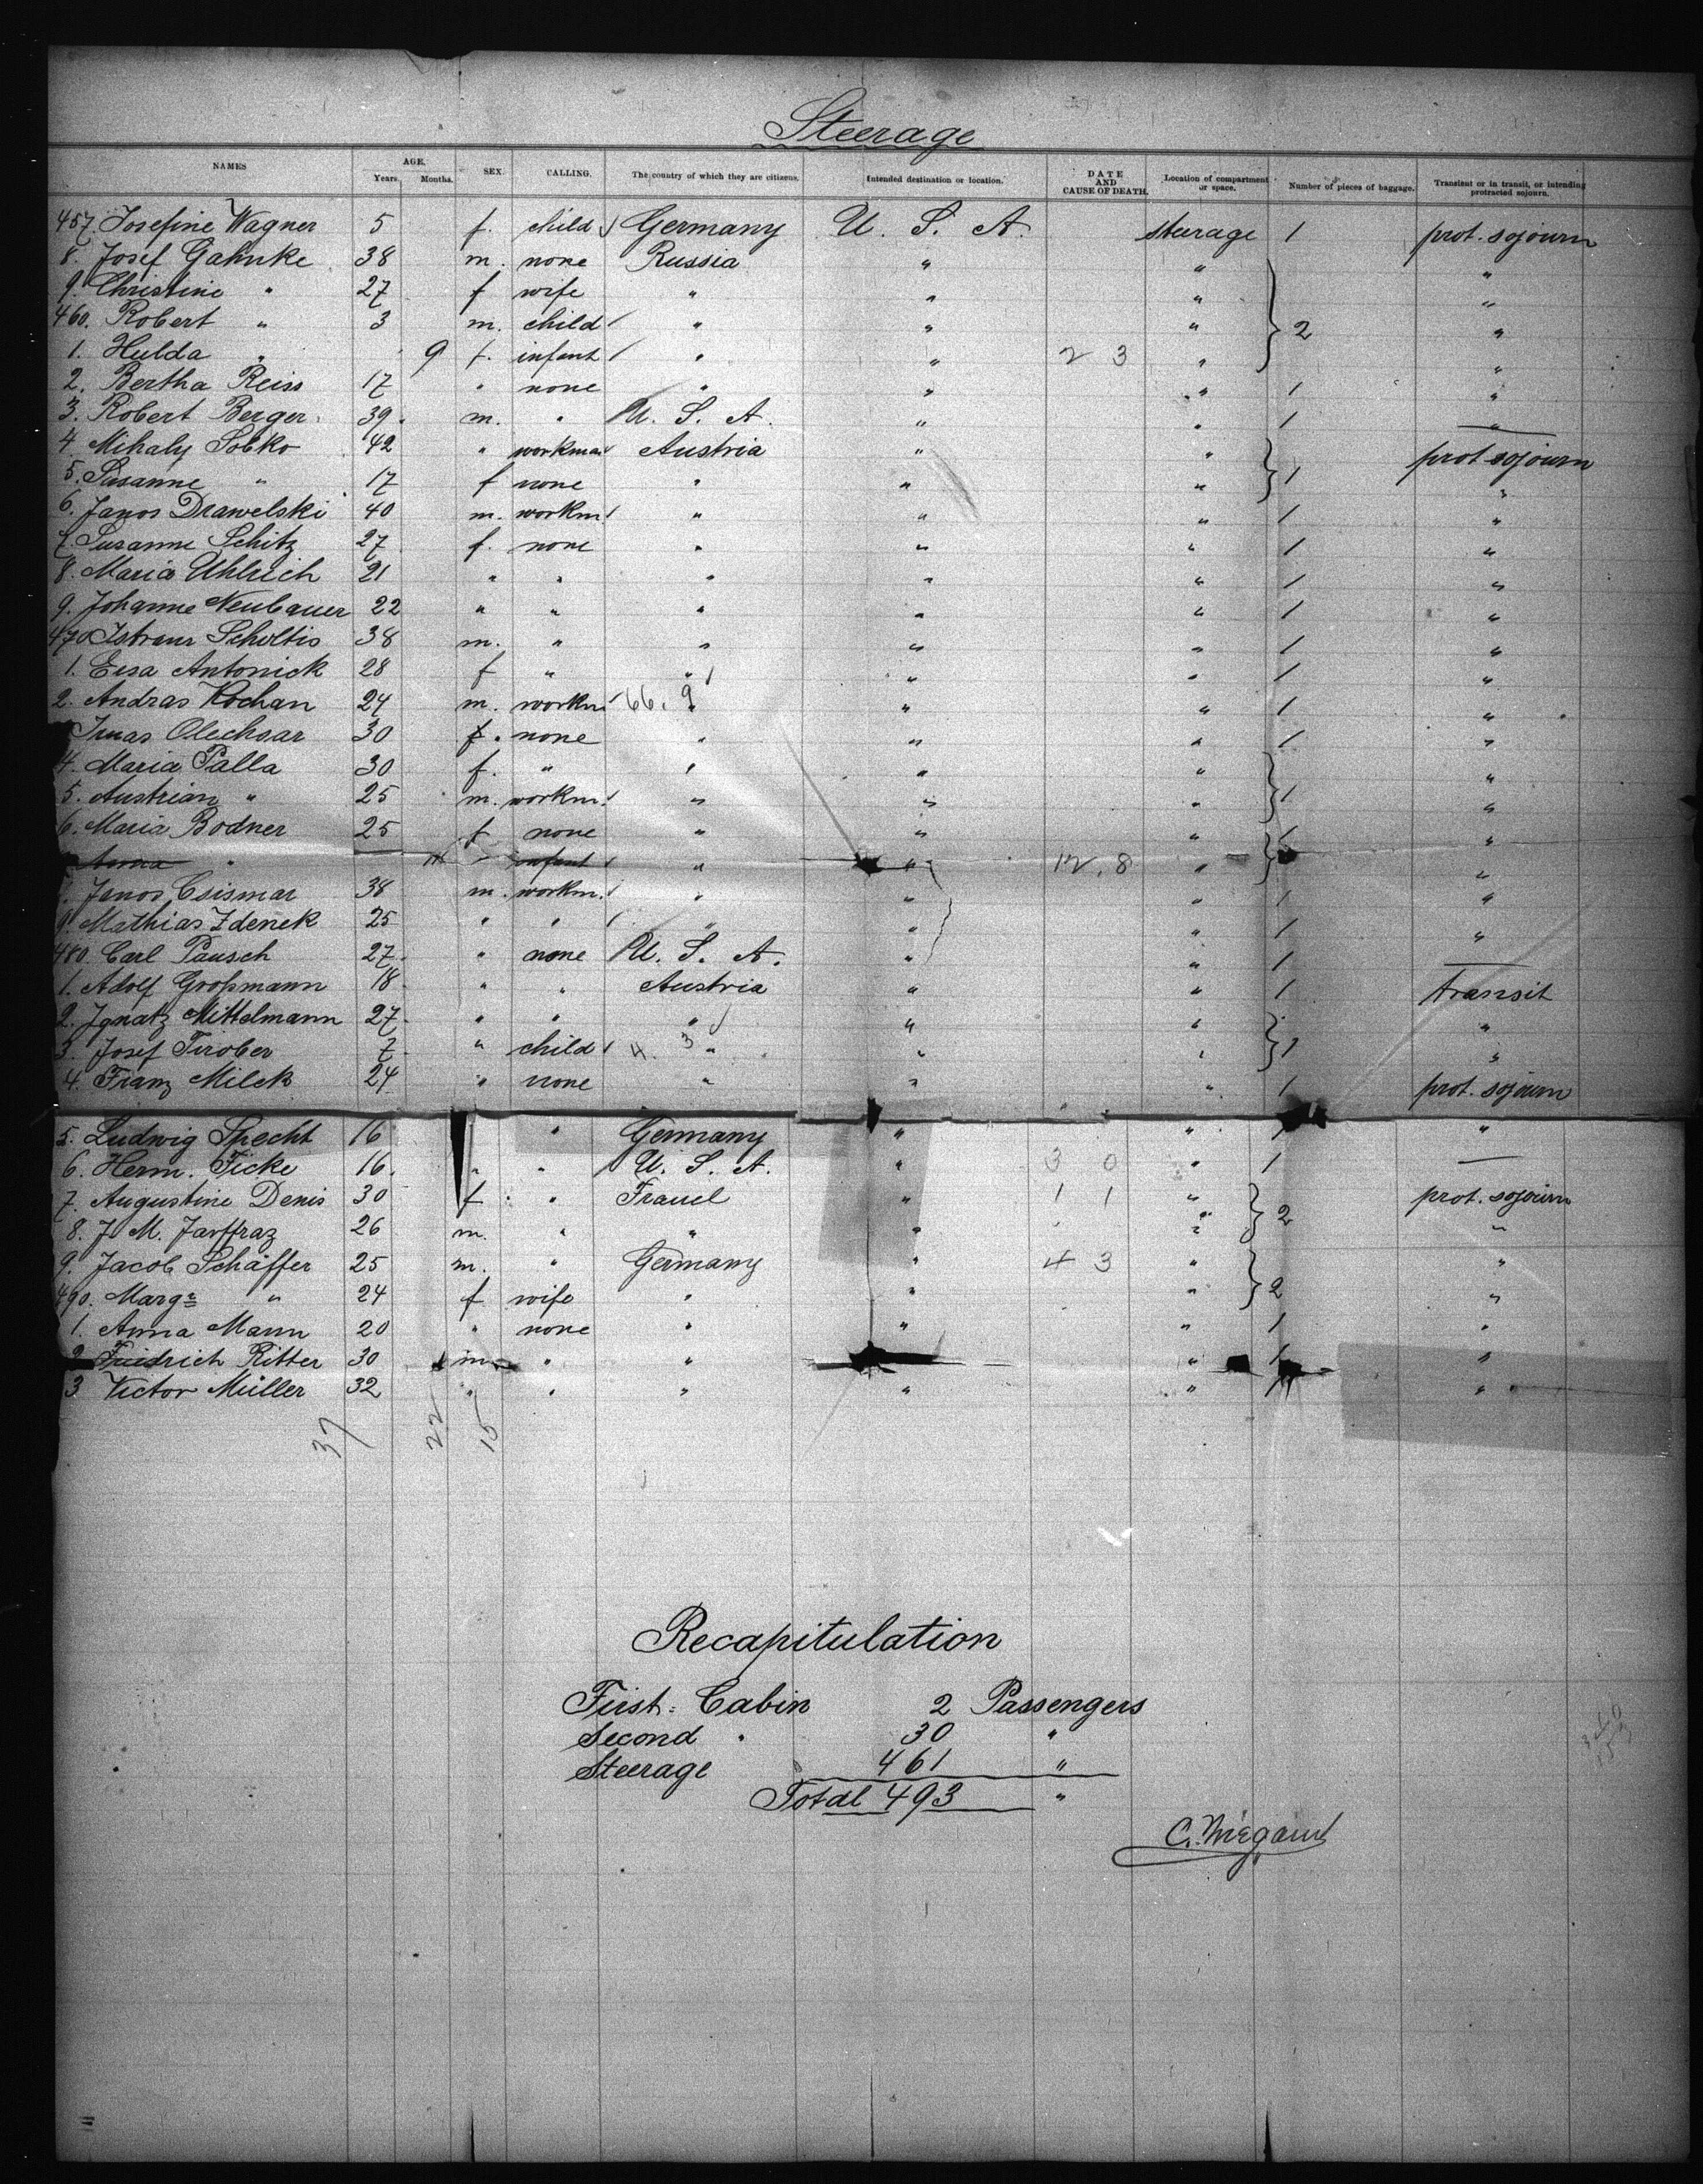 Steerage
NAMES AGE. Years. Months. SEX. CALLING. The country of which they are citizens. Intended destination or location. DATE AND CAUSE OF DEATH. Location of compartment or space. Number of pieces of baggage. Transient or in transit, or intending protracted sojourn.
457. Josefine Wagner 5 f. child Germany U. S. A. steerage 1 prot. sojourn
8. Josef Gahnke 38 m. none Russia " " "
9. Christine " 27 f wife " " " "
460. Robert " 3 m. child " " " 2 "
1. Hulda " 9 f. infant " " 2 3 " "
2. Bertha Reiss 17 " none " " " 1 "
3. Robert Berger 39. m. " U. S. A. " " 1 "
4 Mihaly Sobko 42 " workman Austria " " prot sojourn
5. Susanne " 17 f none " " " 1 "
6. Janos Drawelski 40 m. workm. " " " 1 "
7. Susanne Schitz 27 f. none " " " 1 "
8. Maria Uhlrich 21 " " " " " 1 "
9. Johanne Neubauer 22 " " " " " 1 "
470 Scholtis 38 m. " " " " 1 "
1. Antonick 28 f " " " " 1 "
2. Andras Kochan 24 m. workm. 66. 9 " " " 1 "
Olechsar 30 f. none " " " 1 "
4. Maria Palla 30 f. " " " " "
5. Austrian " 25 m. workm. " " " 1 "
6. Maria Bodner 25 f none " " " "
Anna " infant " " 12. 8 " "
Janos Csismar 38 m. workm. " " " 1 "
9. Mathias Zdenek 25 " " " " " 1 "
480. Carl Pausch 27. " none U. S. A. " " 1
1. Adolf Großmann 18 " " Austria " " 1 transit
2. Ignatz Mittelmann 27. " " " " " "
3. Josef Tirober 7 " child 4. 3 " " " 1 "
4. Franz Milck 24 " none " " " 1 prot. sojourn
5. Ludwig Specht 16 " Germany " " 1 "
6. Herm. Ficke 16. " " U. S. A. " 3 0 " 1
7. Augustine Denis 30 f. " " 1 1 " 2 prot. sojourn
8. J M. 26 m. " " " " "
9. Jacob Schäffer 25 m. " Germany " 4 3 " "
490. Margr " 24 f wife " " " 2 "
1. Anna Mann 20 " none " " " 1 "
2 Friedrich Ritter 30 m. " " " 1 "
3 Victor Müller 32 " " " " " 1 "
37 22 15
Recapitulation
First: Cabin 2 Passengers
Second " 30 "
Steerage 461 "
Total 493 "